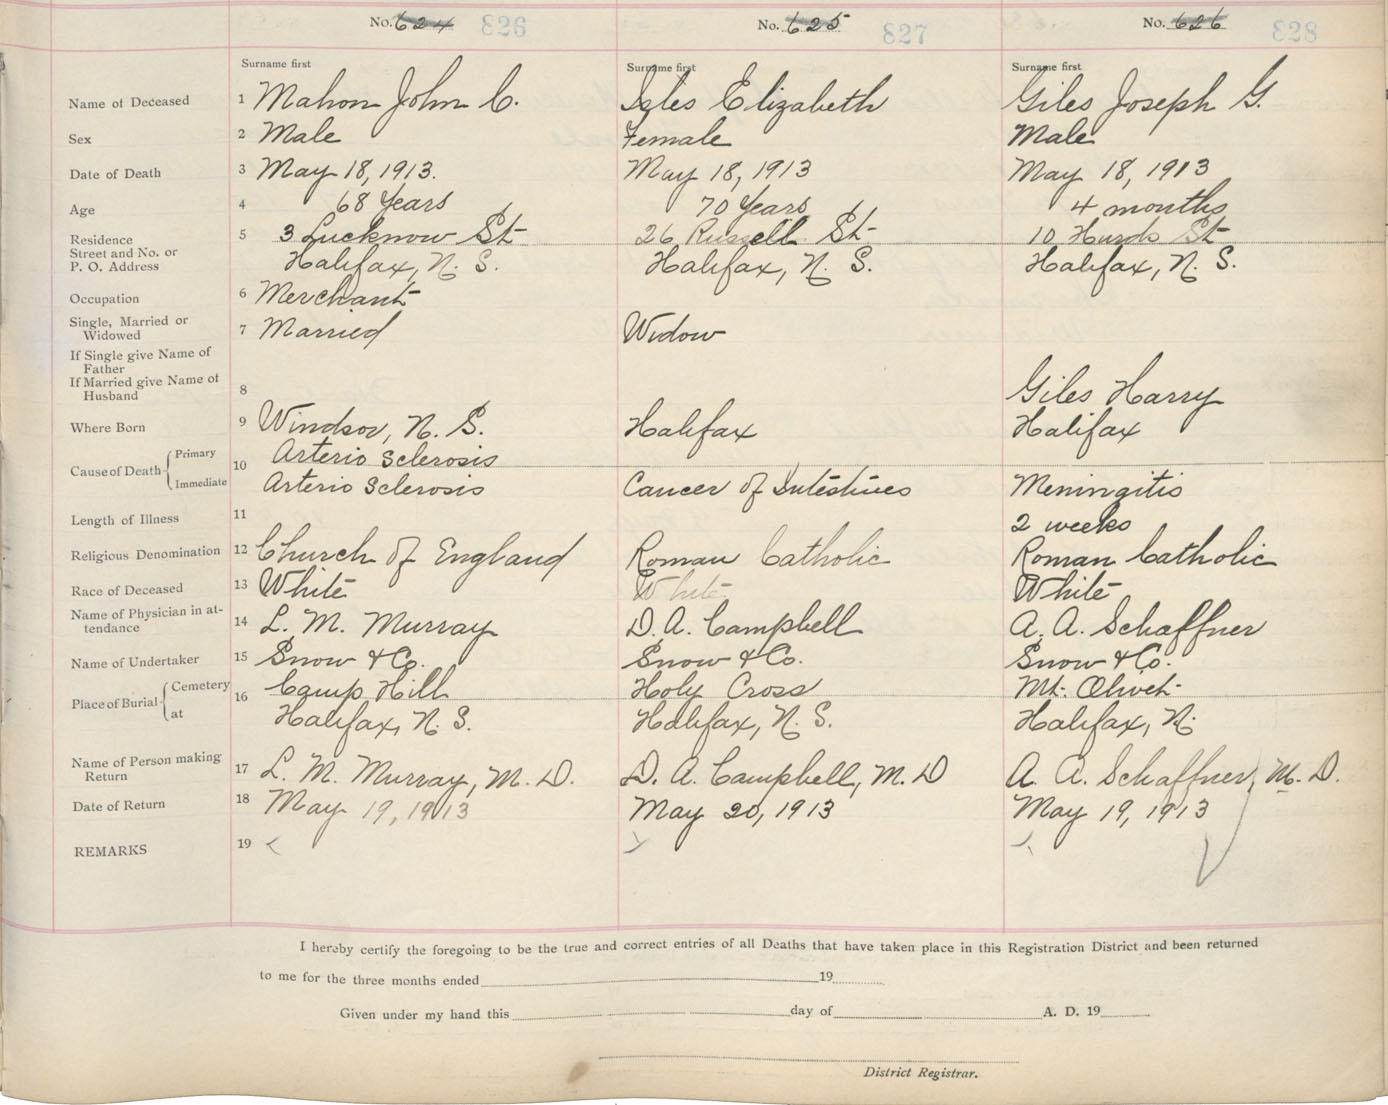 No. 624 826 No. 625 827 No. 626 828
Surname first Surname first Surname first
Name of Deceased 1 Mahon John C. Isles Elizabeth Giles Joseph G.
Sex 2 Male Female Male
Date of Death 3 May 18, 1913. May 18, 1913 May 18, 1913
Age 4 68 Years 70 Years 4 months
Residence 5 3 Lucknow St 26 Russell St 10 Hurds St
Street and No. or
P. O. Address Halifax, N. S. Halifax, N. S. Halifax, N. S.
Occupation 6 Merchant
Single, Married or
Widowed 7 Married Widow
If Single give Name of
Father
If Married give Name of
Husband 8 Giles Harry
Where Born 9 Windsor, N. S. Halifax Halifax
Cause of Death Primary 10 Arterio Sclerosis
Immediate Arterio Sclerosis Cancer of Intestines Meningitis
Length of Illness 11 2 weeks
Religious Denomination 12 Church of England Roman Catholic Roman Catholic
Race of Deceased 13 White White White
Name of Physician in at-
tendance 14 L. M. Murray D. A. Campbell A. A. Schaffner
Name of Undertaker 15 Snow & Co. Snow & Co. Snow & Co.
Place of Burial Cemetery 16 Camp Hill Holy Cross Mt. Olivet
at Halifax, N. S. Halifax, N. S. Halifax, N.
Name of Person making
Return 17 L. M. Murray, M. D. D. A. Campbell, M. D A. A. Schaffner, M. D.
Date of Return 18 May 19, 1913 May 20, 1913 May 19, 1913
REMARKS 19
I hereby certify the foregoing to be the true and correct entries of all Deaths that have taken place in this Registration District and been returned
to me for the three months ended 19
Given under my hand this day of A. D. 19
District Registrar.